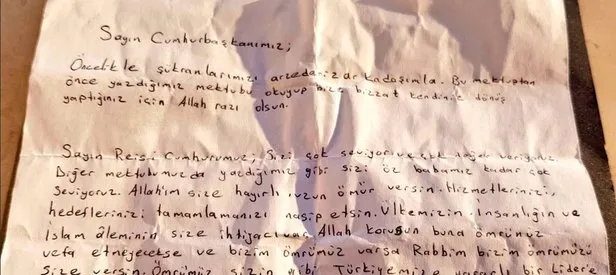 Sayın Cumhurbaşkanımız;
Öncelikle şükranlarımızı arzederiz arkadaşımla. Bu mektuptan
önce yazdığımız mektubu okuyup bize bizzat kendiniz dönüş
yaptığınız için Allah razı olsun.
Sayın Reis-i Cumhurumuz, Sizi çok seviyor ve çok değer veriyoruz.
Diğer mektubumuzda yazdığımız gibi sizi öz babamız kadar çok
seviyoruz. Allah'ım size hayırlı uzun ömür versin. Hizmetlerinizi,
hedeflerinizi tamamlamanızı nasip etsin. Ülkemizin, İnsanlığın ve
İslam âleminin size ihtiyacı var. Allah korusun buna ömrünüz
vefa etmeyecekse ve bizim ömrümüz varsa Rabbim bizim ömrümüzü
Size versin. Ömrümüz sizin gibi Türkiyemize hayırlı bir Lider'e